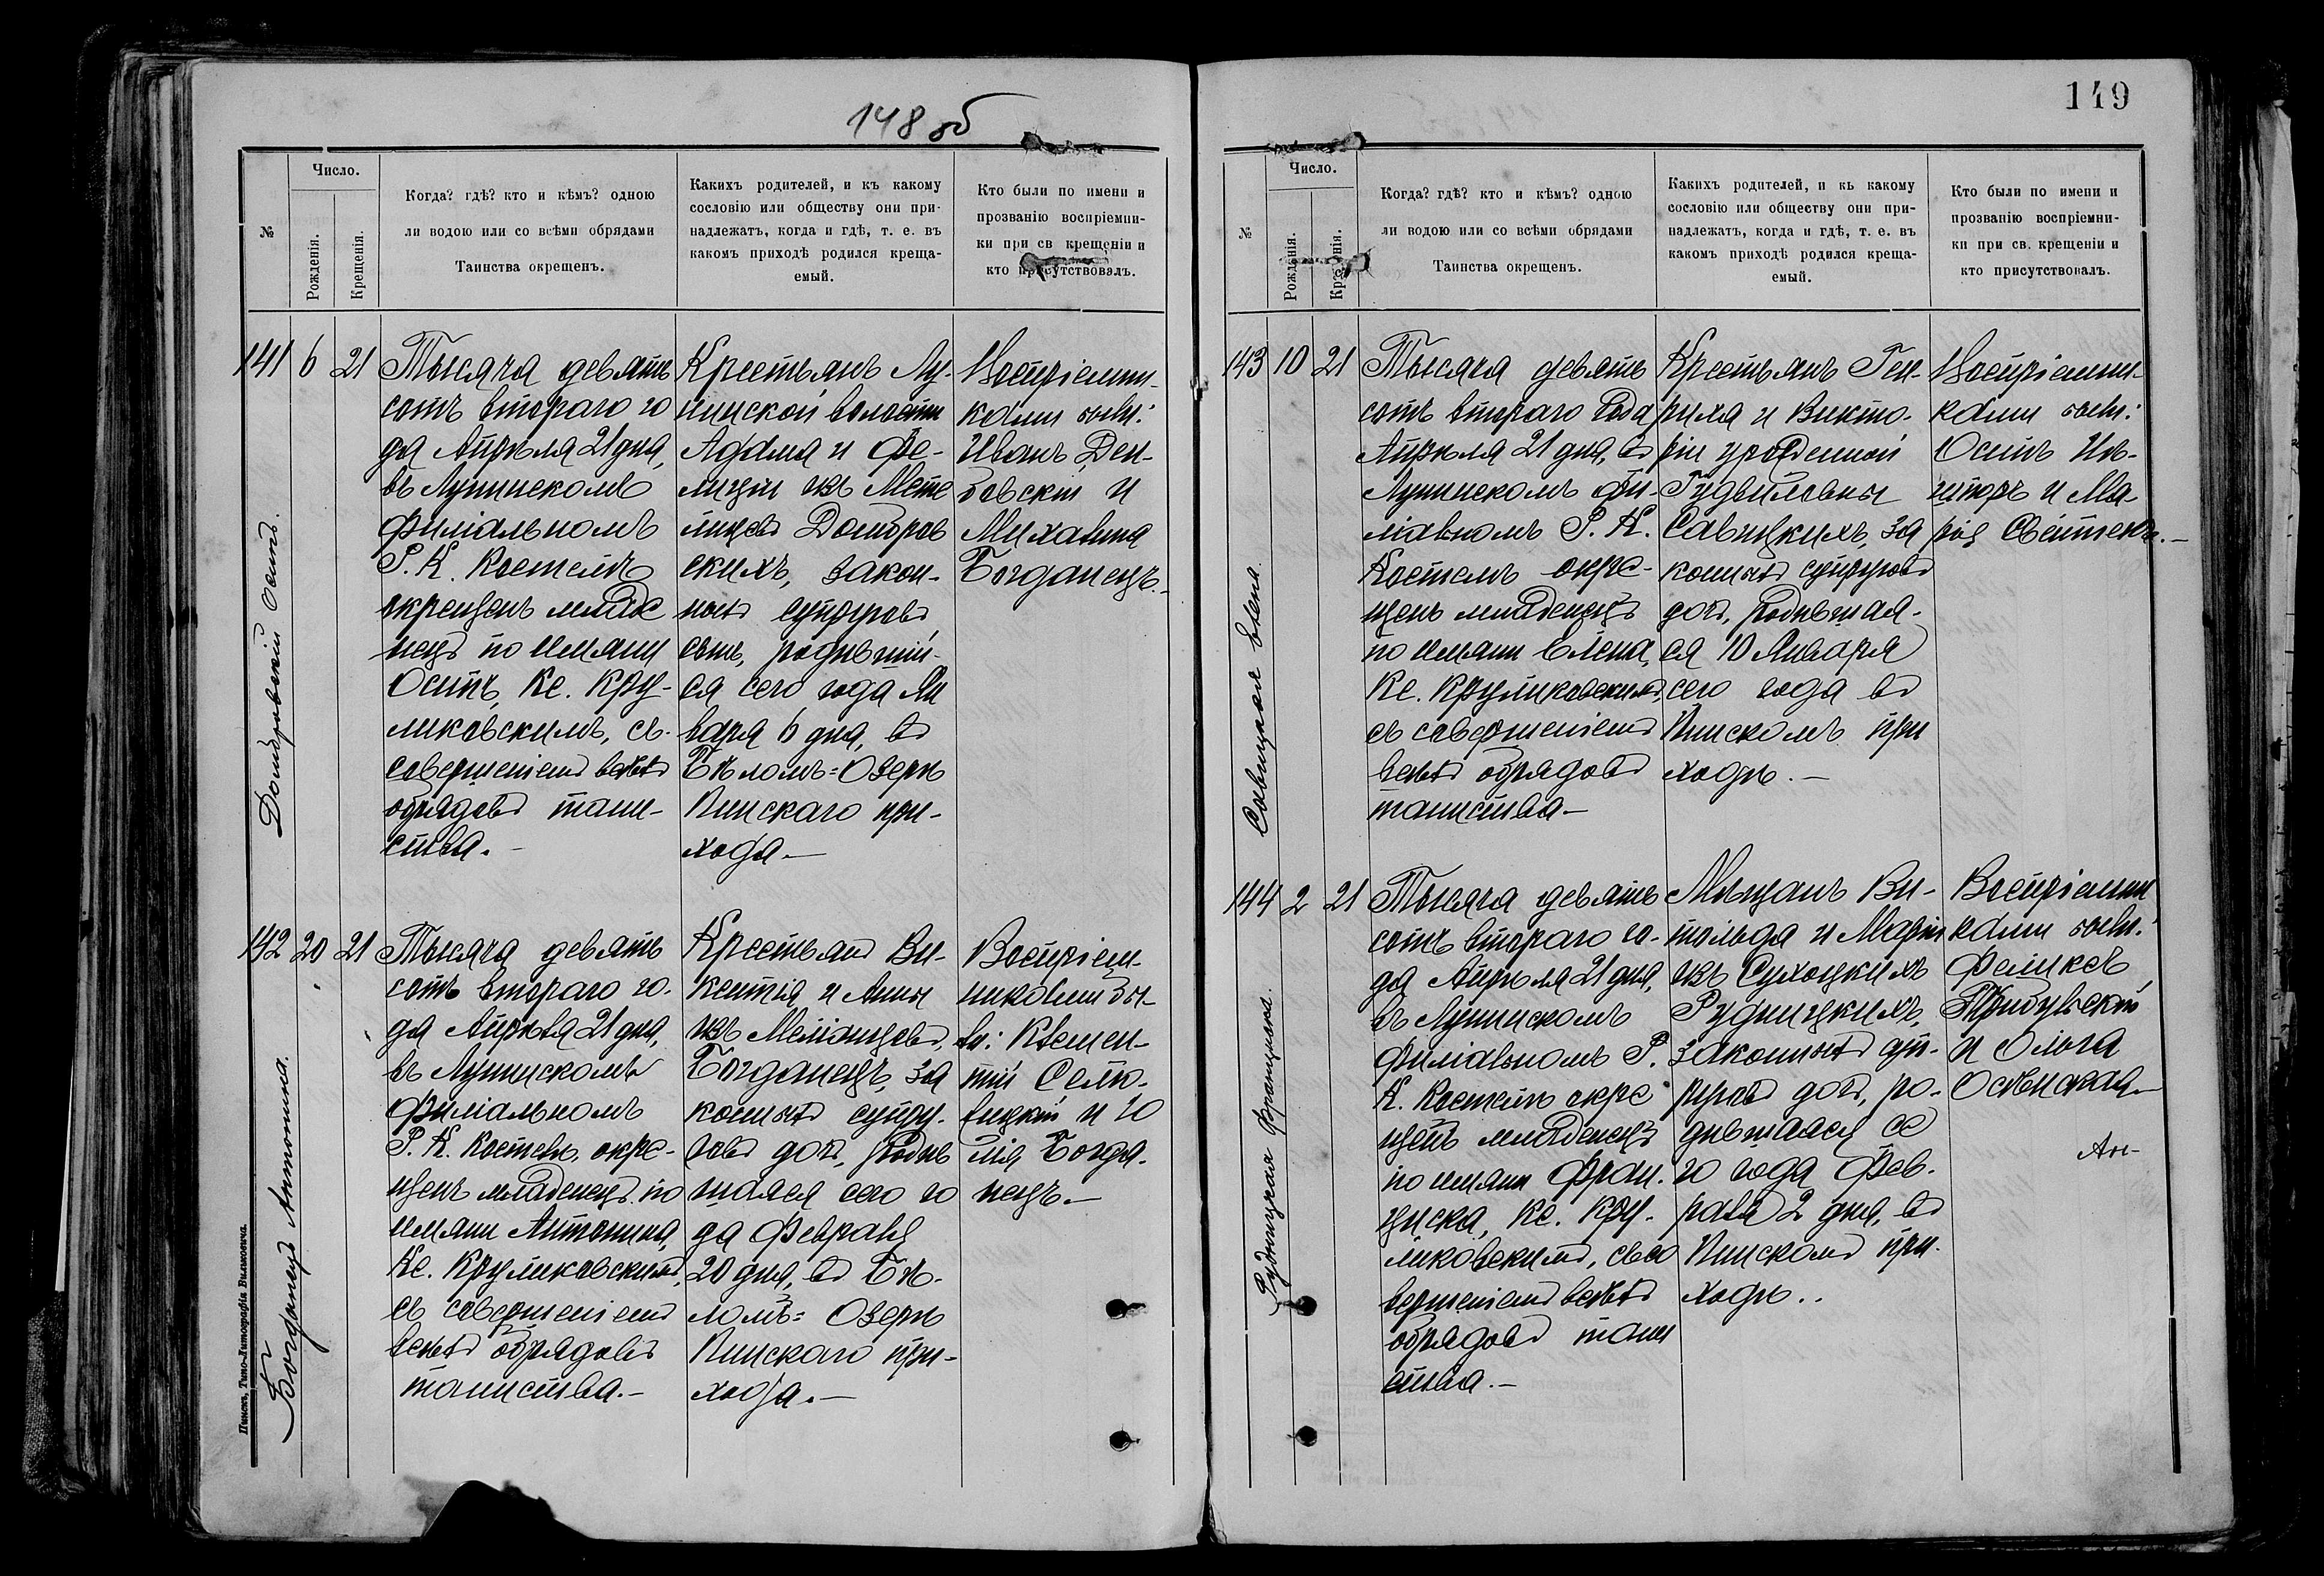 148 об
№
Число.
Рожденія.
Крещенія.
Когда? гдѣ? кто и кѣмъ? одною
ли водою или со всѣми обрядами
Таинства окрещенъ.
Какихъ родителей, и къ какому
сословію или обществу они при-
надлежатъ, когда и гдѣ, т. е. въ
какомъ приходѣ родился креща-
емый.
Кто были по имени и
прозванію воспріемни-
ки при св крещеніи и
кто присутствовалъ.
141 6 21
Домбровскій Осипъ.
Тысяча девять
сотъ второго го
да Апрѣля 21 дня,
въ Лунинскомъ
филіальномъ
Р. К. Костелѣ
окрещенъ младе
нецъ по имяни
Осипъ, Кс. Кру-
ликовскимъ, съ
совершеніемъ всѣхъ
обрядовъ таин-
ства.-
Крестьянъ Лу-
нинской волости
Адама и Фе-
лиціи изъ
Домбров
скихъ, закон-
ныхъ супруговъ
сынъ, родившій-
ся сего года Ян
варя 6 дня, въ
Бѣломъ=Озерѣ
Пинскаго при-
хода.-
Воспріемни-
ками были:
Иванъ
и
Михалина
Богданецъ.-
142 20 21
Богданецъ Антонина.
Тысяча девять
сотъ второго го-
да Апрѣля 21 дня,
въ Лунинскомъ
филіальномъ
Р. К. Костелѣ, окре-
щенъ младенецъ по
имяни Антонина,
Кс. Круликовскимъ,
съ совершеніемъ
всѣхъ обрядовъ
таинства.-
Крестьянъ Ви-
кентія и Анны
изъ
Богданецъ, за
конныхъ супру-
говъ дочь, родив
шаяся сего го
да Февраля
20 дня, въ Бѣ-
ломъ=Озерѣ
Пинскаго при-
хода.-
Воспріем-
никами бы-
ли: Клемен-
тій
и Ю
лія Богда-
нецъ.-
Пинскъ, Типо-Литографія Вильковича.
149
№
Число.
Рожденія.
Крещенія.
Когда? гдѣ? кто и кѣмъ? одною
ли водою или со всѣми обрядами
Таинства окрещенъ.
Какихъ родителей, и къ какому
сословію или обществу они при-
надлежатъ, когда и гдѣ, т. е. въ
какомъ приходѣ родился креща-
емый.
Кто были по имени и
прозванію воспріемни-
ки при св. крещеніи и
кто присутствовалъ.
143 10 21
Савицкая Елена.
Тысяча девять
сотъ второго года
Апрѣля 21 дня, въ
Лунинскомъ фи-
ліальномъ Р. К.
Костелѣ окре-
щенъ младенецъ
по имяни Елена,
Кс. Круликовскимъ,
съ совершеніемъ
всѣхъ обрядовъ
таинства-
Крестьянъ Ген-
риха и Викто-
ріи урожденной
Гудвиловны
Савицкихъ, за
конныхъ супруговъ
дочь, родившая-
ся 10 Января
сего года въ
Пинскомъ при
ходѣ.-
Воспріемни-
ками были:
Осипъ
и Ма-
рія
144 2 21
Рудницкая Франциска.
Тысяча девять
сотъ второго го-
да Апрѣля 21 дня,
въ Лунинскомъ
филіальномъ Р.
К. Костелѣ окре
щенъ младенецъ
по имяни Фран-
циска, Кс. Кру-
ликовскимъ, съ со
вершеніемъ всѣхъ
обрядовъ таин
ства.-
Мѣщанъ Ви-
тольда и Маріи
изъ Сухоцкихъ
Рудницкихъ,
законныхъ суп-
руговъ дочь, ро-
дившаяся се
го года Фев-
раля 2 дня, въ
Пинскомъ при-
ходѣ..
Воспріемни
ками были:
Феликсъ
и Ольга